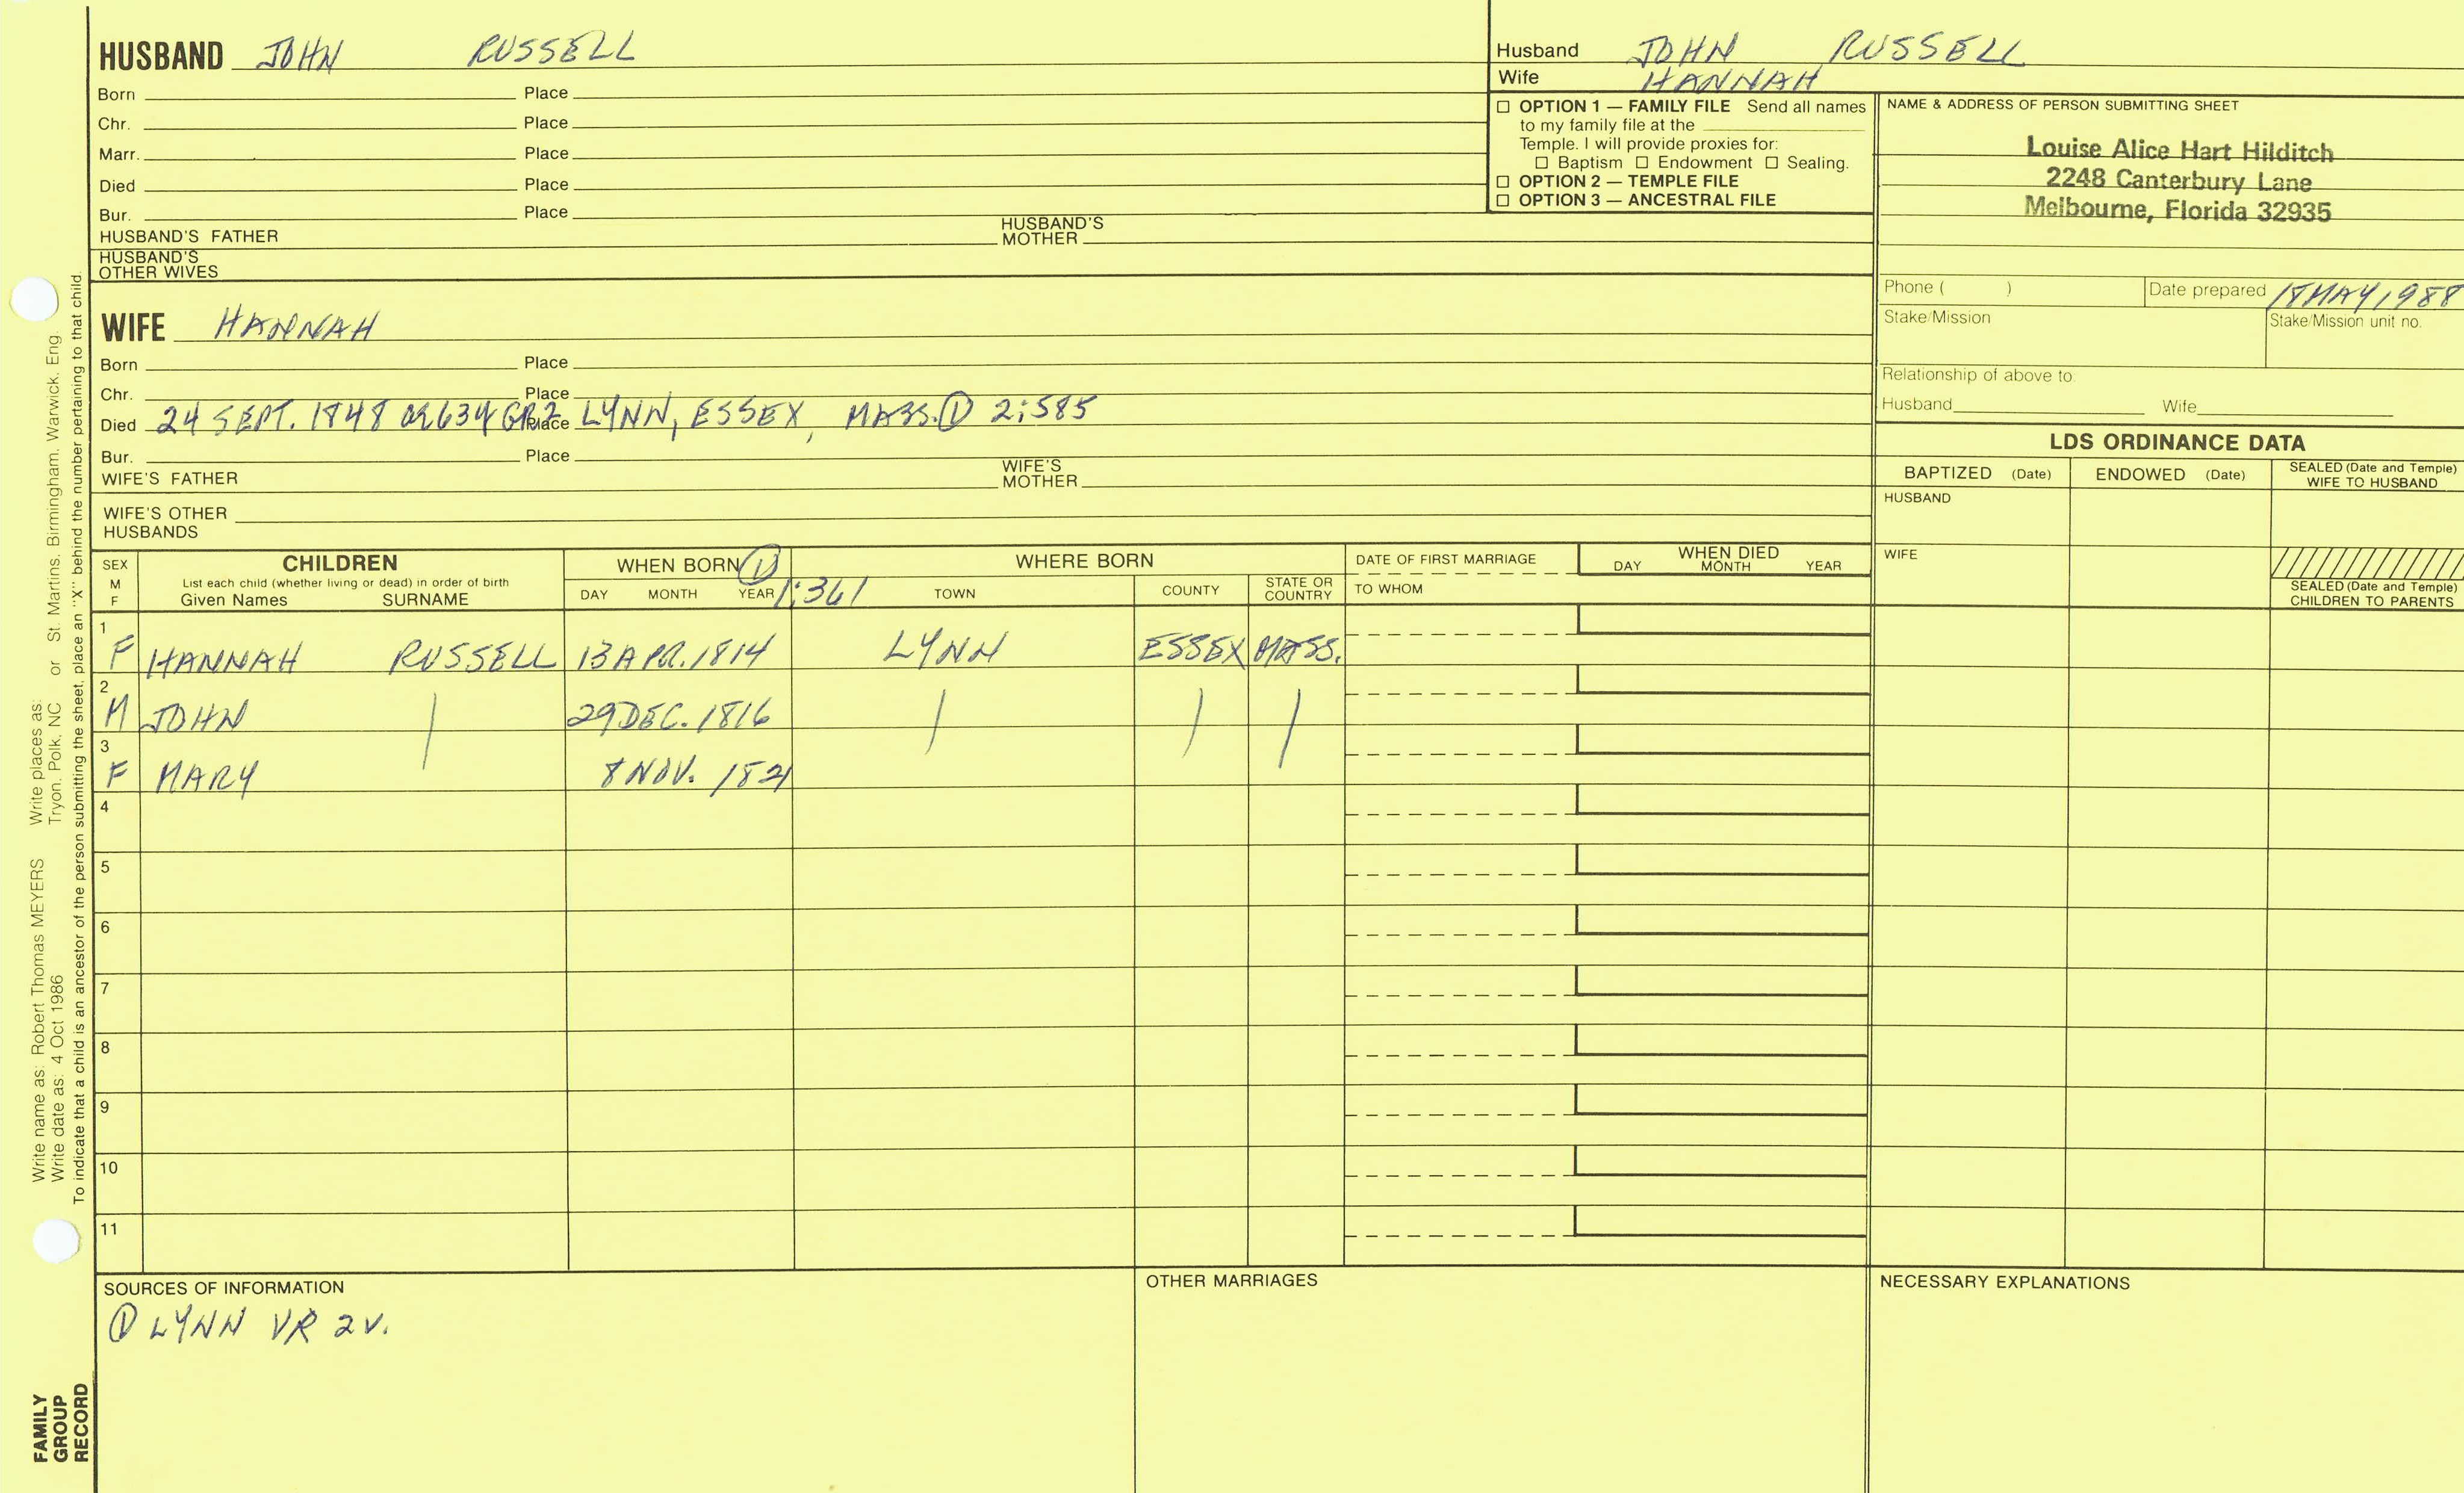 HUSBAND JOHN RUSSELL
Born Place
Chr. Place
Marr. Place
Died Place
Bur. Place
HUSBAND'S FATHER HUSBAND'S MOTHER
HUSBAND'S OTHER WIVES
Husband JOHN RUSSELL
Wife HANNAH
☐ OPTION 1 — FAMILY FILE Send all names
to my family file at the
Temple. I will provide proxies for:
☐ Baptism ☐ Endowment ☐ Sealing.
☐ OPTION 2 — TEMPLE FILE
☐ OPTION 3 — ANCESTRAL FILE
NAME & ADDRESS OF PERSON SUBMITTING SHEET
Louise Alice Hart Hilditch
2248 Canterbury Lane
Melbourne, Florida 32935
Phone ( ) Date prepared 18 MAY 1988
Stake/Mission Stake/Mission unit no.
Relationship of above to
Husband Wife
WIFE HANNAH
Born Place
Chr. Place
Died 24 SEPT. 1848 Place LYNN, ESSEX, MASS. ① 2:585
Bur. Place
WIFE'S FATHER WIFE'S MOTHER
WIFE'S OTHER
HUSBANDS
LDS ORDINANCE DATA
BAPTIZED (Date) ENDOWED (Date) SEALED (Date and Temple) WIFE TO HUSBAND
HUSBAND
WIFE
SEALED (Date and Temple)
CHILDREN TO PARENTS
SEX M F CHILDREN WHEN BORN ① WHERE BORN DATE OF FIRST MARRIAGE WHEN DIED
List each child (whether living or dead) in order of birth
Given Names SURNAME DAY MONTH YEAR 1:361 TOWN COUNTY STATE OR COUNTRY TO WHOM DAY MONTH YEAR
1 F HANNAH RUSSELL 13 APR. 1814 LYNN ESSEX MASS.
2 M JOHN | 29 DEC. 1816 | | |
3 F MARY 8 NOV. 1821
4
5
6
7
8
9
10
11
SOURCES OF INFORMATION
① LYNN VR 2V.
OTHER MARRIAGES
NECESSARY EXPLANATIONS
Write name as: Robert Thomas MEYERS Write places as:
Write date as: 4 Oct 1986 Tryon, Polk, NC or St. Martins, Birmingham, Warwick, Eng.
To indicate that a child is an ancestor of the person submitting the sheet, place an "X" behind the number pertaining to that child.
FAMILY
GROUP
RECORD